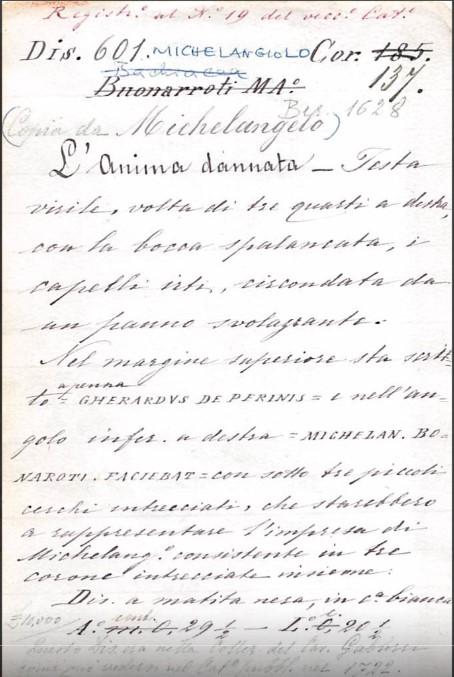 Registr.º al N.º 19 del vecc.º Cat.º
Dis. 601. MICHELANGIOLO Cor. 185.
Bachiacca 137.
Buonarroti M.A.º
Ber. 1628
(Copia da Michelangelo)
L'Anima dannata — Testa
virile, volta di tre quarti a destra,
con la bocca spalancata, i
capelli irti, circondata da
un panno svolazzante.
Nel margine superiore sta scrit=
a penna
to = GHERARDVS DE PERINIS = e nell'an=
golo infer. a destra = MICHELAN. BO=
NAROTI. FACIEBAT = con sotto tre piccoli
cerchi intrecciati, che starebbero
a rappresentare l'impresa di
Michelang.º consistente in tre
corone intrecciate insieme.
Dis. a matita nera, in c.ª bianca
A.º m. 0, 29 ½ — L.º 0, 20 ½
Questo Dis. era nella Collez. del Cav. Gabburri
come può vedersi nel Cat.º pubbl. nel 1722.